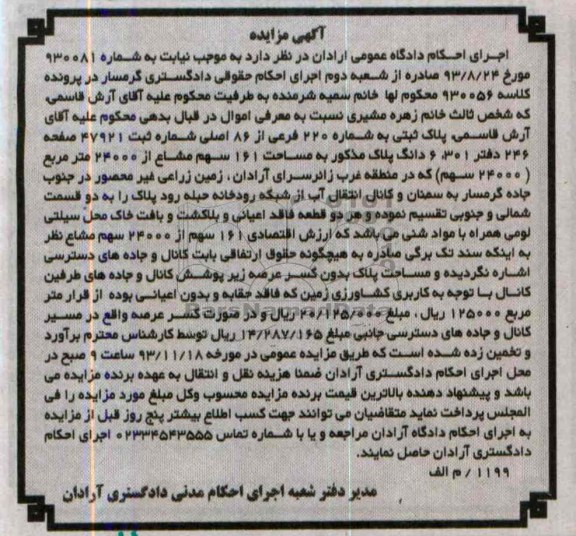 آگهی مزایده
اجرای احکام دادگاه عمومی ارادان در نظر دارد به موجب نیابت به شماره ۹۳۰۰۸۱
مورخ ۹۳/۸/۲۴ صادره از شعبه دوم اجرای احکام حقوقی دادگستری گرمسار در پرونده
کلاسه ۹۳۰۰۵۶ محکوم لها خانم سمیه شرمنده به طرفیت محکوم علیه آقای آرش قاسمی،
که شخص ثالث خانم زهره مشیری نسبت به معرفی اموال در قبال بدهی محکوم علیه آقای
آرش قاسمی، پلاک ثبتی به شماره ۲۲۰ فرعی از ۸۶ اصلی شماره ثبت ۴۷۹۲۱ صفحه
۲۴۶ دفتر ۳۰۱، ۶ دانگ پلاک مذکور به مساحت ۱۶۱ سهم مشاع از ۲۴۰۰۰ متر مربع
( ۲۴۰۰۰ سهم) که در منطقه غرب زائرسرای آرادان ، زمین زراعی غیر محصور در جنوب
جاده گرمسار به سمنان و کانال انتقال آب از شبکه رودخانه حبله رود پلاک را به دو قسمت
شمالی و جنوبی تقسیم نموده و هر دو قطعه فاقد اعیانی و بلاکشت و بافت خاک محل سیلتی
لومی همراه با مواد شنی می باشد که ارزش اقتصادی ۱۶۱ سهم از ۲۴۰۰۰ سهم مشاع نظر
به اینکه سند تک برگی صادره به هیچگونه حقوق ارتفاقی بابت کانال و جاده های دسترسی
اشاره نگردیده و مساحت پلاک بدون کسر عرصه زیر پوشش کانال و جاده های طرفین
کانال با توجه به کاربری کشاورزی زمین که فاقد حقابه و بدون اعیانی بوده از قرار متر
مربع ۱۲۵۰۰۰ ریال ، مبلغ ۲۰/۱۲۵/۰۰۰ ریال و در صورت کسر عرصه واقع در مسیر
کانال و جاده های دسترسی جانبی مبلغ ۱۴/۲۸۷/۱۶۵ ریال توسط کارشناس محترم برآورد
و تخمین زده شده است که طریق مزایده عمومی در مورخه ۹۳/۱۱/۱۸ ساعت ۹ صبح در
محل اجرای احکام دادگستری آرادان ضمنا هزینه نقل و انتقال به عهده برنده مزایده می
باشد و پیشنهاد دهنده بالاترین قیمت برنده مزایده محسوب وکل مبلغ مورد مزایده را فی
المجلس پرداخت نماید متقاضیان می توانند جهت کسب اطلاع بیشتر پنج روز قبل از مزایده
به اجرای احکام دادگاه آرادان مراجعه و یا با شماره تماس ۰۲۳۳۴۵۴۳۵۵۵ اجرای احکام
دادگستری آرادان حاصل نمایند.
۱۱۹۹ / م الف
مدیر دفتر شعبه اجرای احکام مدنی دادگستری آرادان